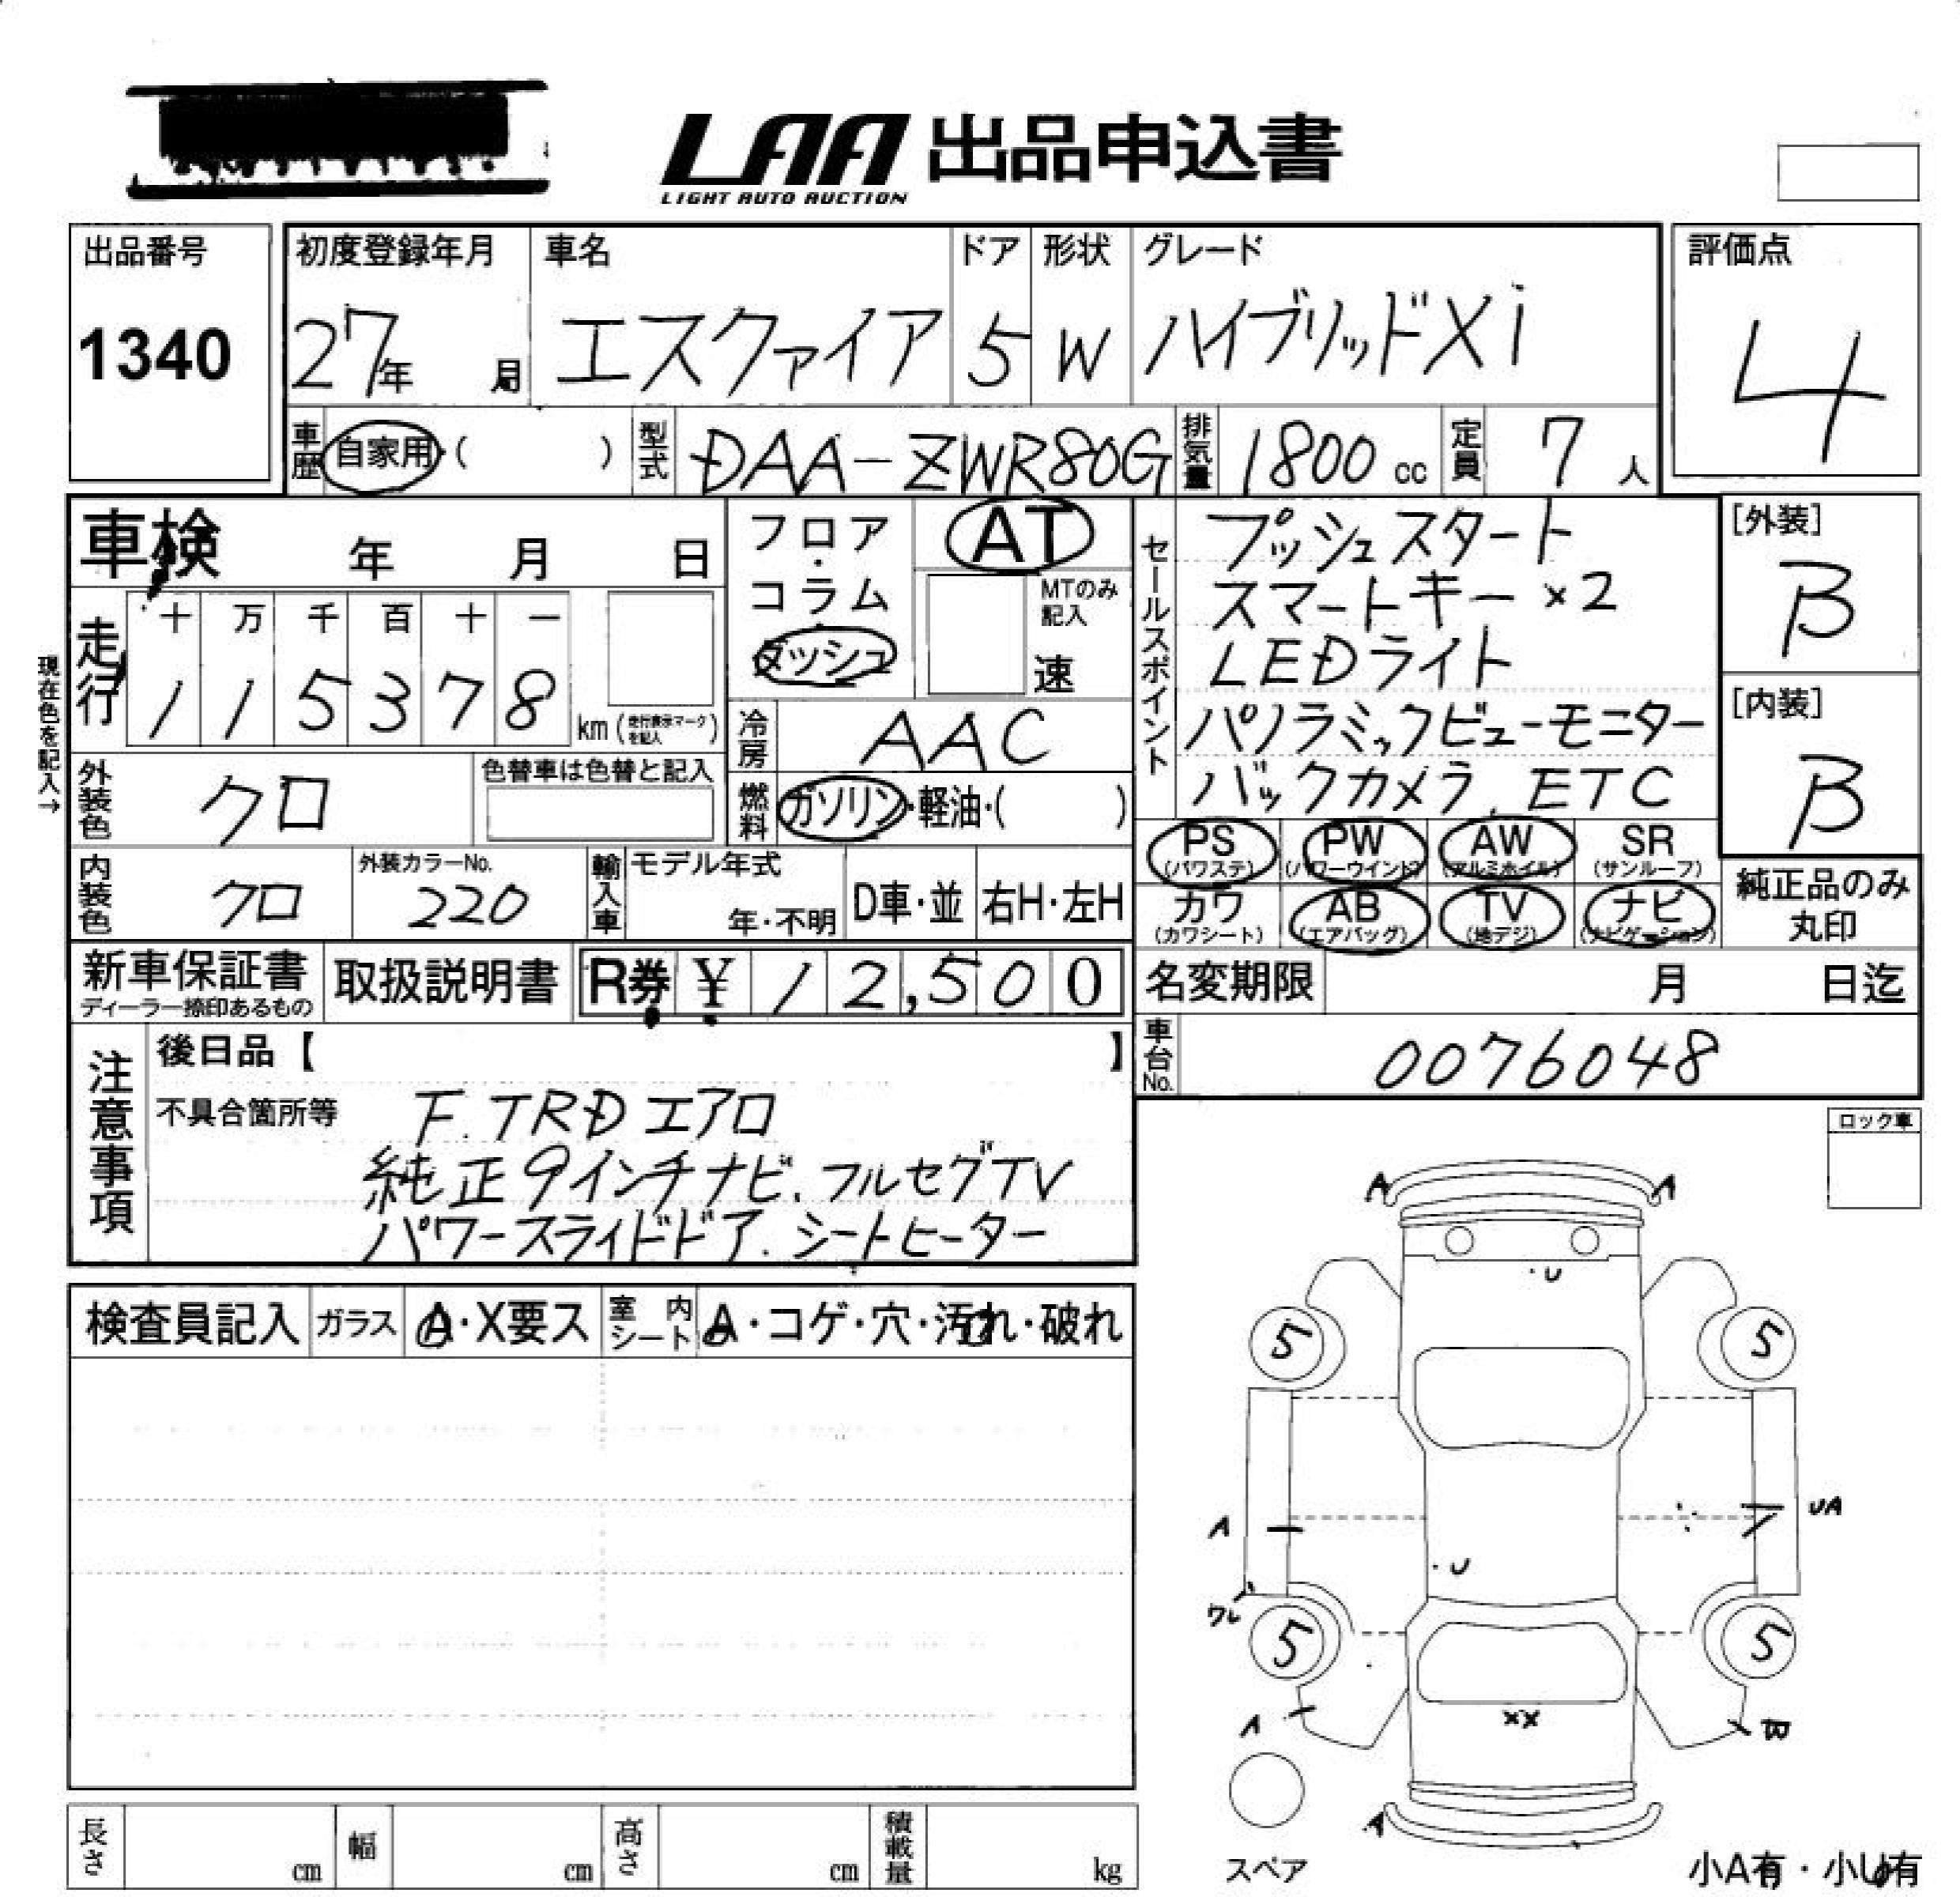 LAA 出品申込書
LIGHT AUTO AUCTION
出品番号 初度登録年月 車名 ドア 形状 グレード 評価点
1340 27年 月 エスクァイア 5 W ハイブリッドXi 4
車歴 自家用・( ) 型式 DAA-ZWR80G 排気量 1800 cc 定員 7 人
車検 年 月 日
フロア・コラム ダッシュ
AT
MTのみ記入 速
セールスポイント
プッシュスタート
スマートキー×2
LEDライト
パノラミックビューモニター
バックカメラ、ETC
[外装]
B
[内装]
B
現在色を記入→
走行 十 万 千 百 十 一
115378 km (走行表示マークを記入)
冷房 AAC
外装色 クロ 色替車は色替と記入
燃料 ガソリン・軽油・( )
PS (パワステ) PW (パワーウインド) AW (アルミホイル) SR (サンルーフ)
カワ (カワシート) AB (エアバッグ) TV (地デジ) ナビ (ナビゲーション)
純正品のみ丸印
内装色 クロ 外装カラーNo. 220 輸入車 モデル年式 年・不明 D車・並 右H・左H
新車保証書 取扱説明書 R券 ¥ 12,500
ディーラー捺印あるもの
名変期限 月 日迄
車台No. 0076048
注意事項
後日品【 】
不具合箇所等 F.TRDエアロ
純正9インチナビ、フルセグTV
パワースライドドア、シートヒーター
ロック車
検査員記入 ガラス A・X要ス 室内シート A・コゲ・穴・汚れ・破れ
A A
U
5 5
A UA
U
ワレ
5 5
A XX B
A
スペア
長さ cm 幅 cm 高さ cm 積載量 kg
小A有・小U有